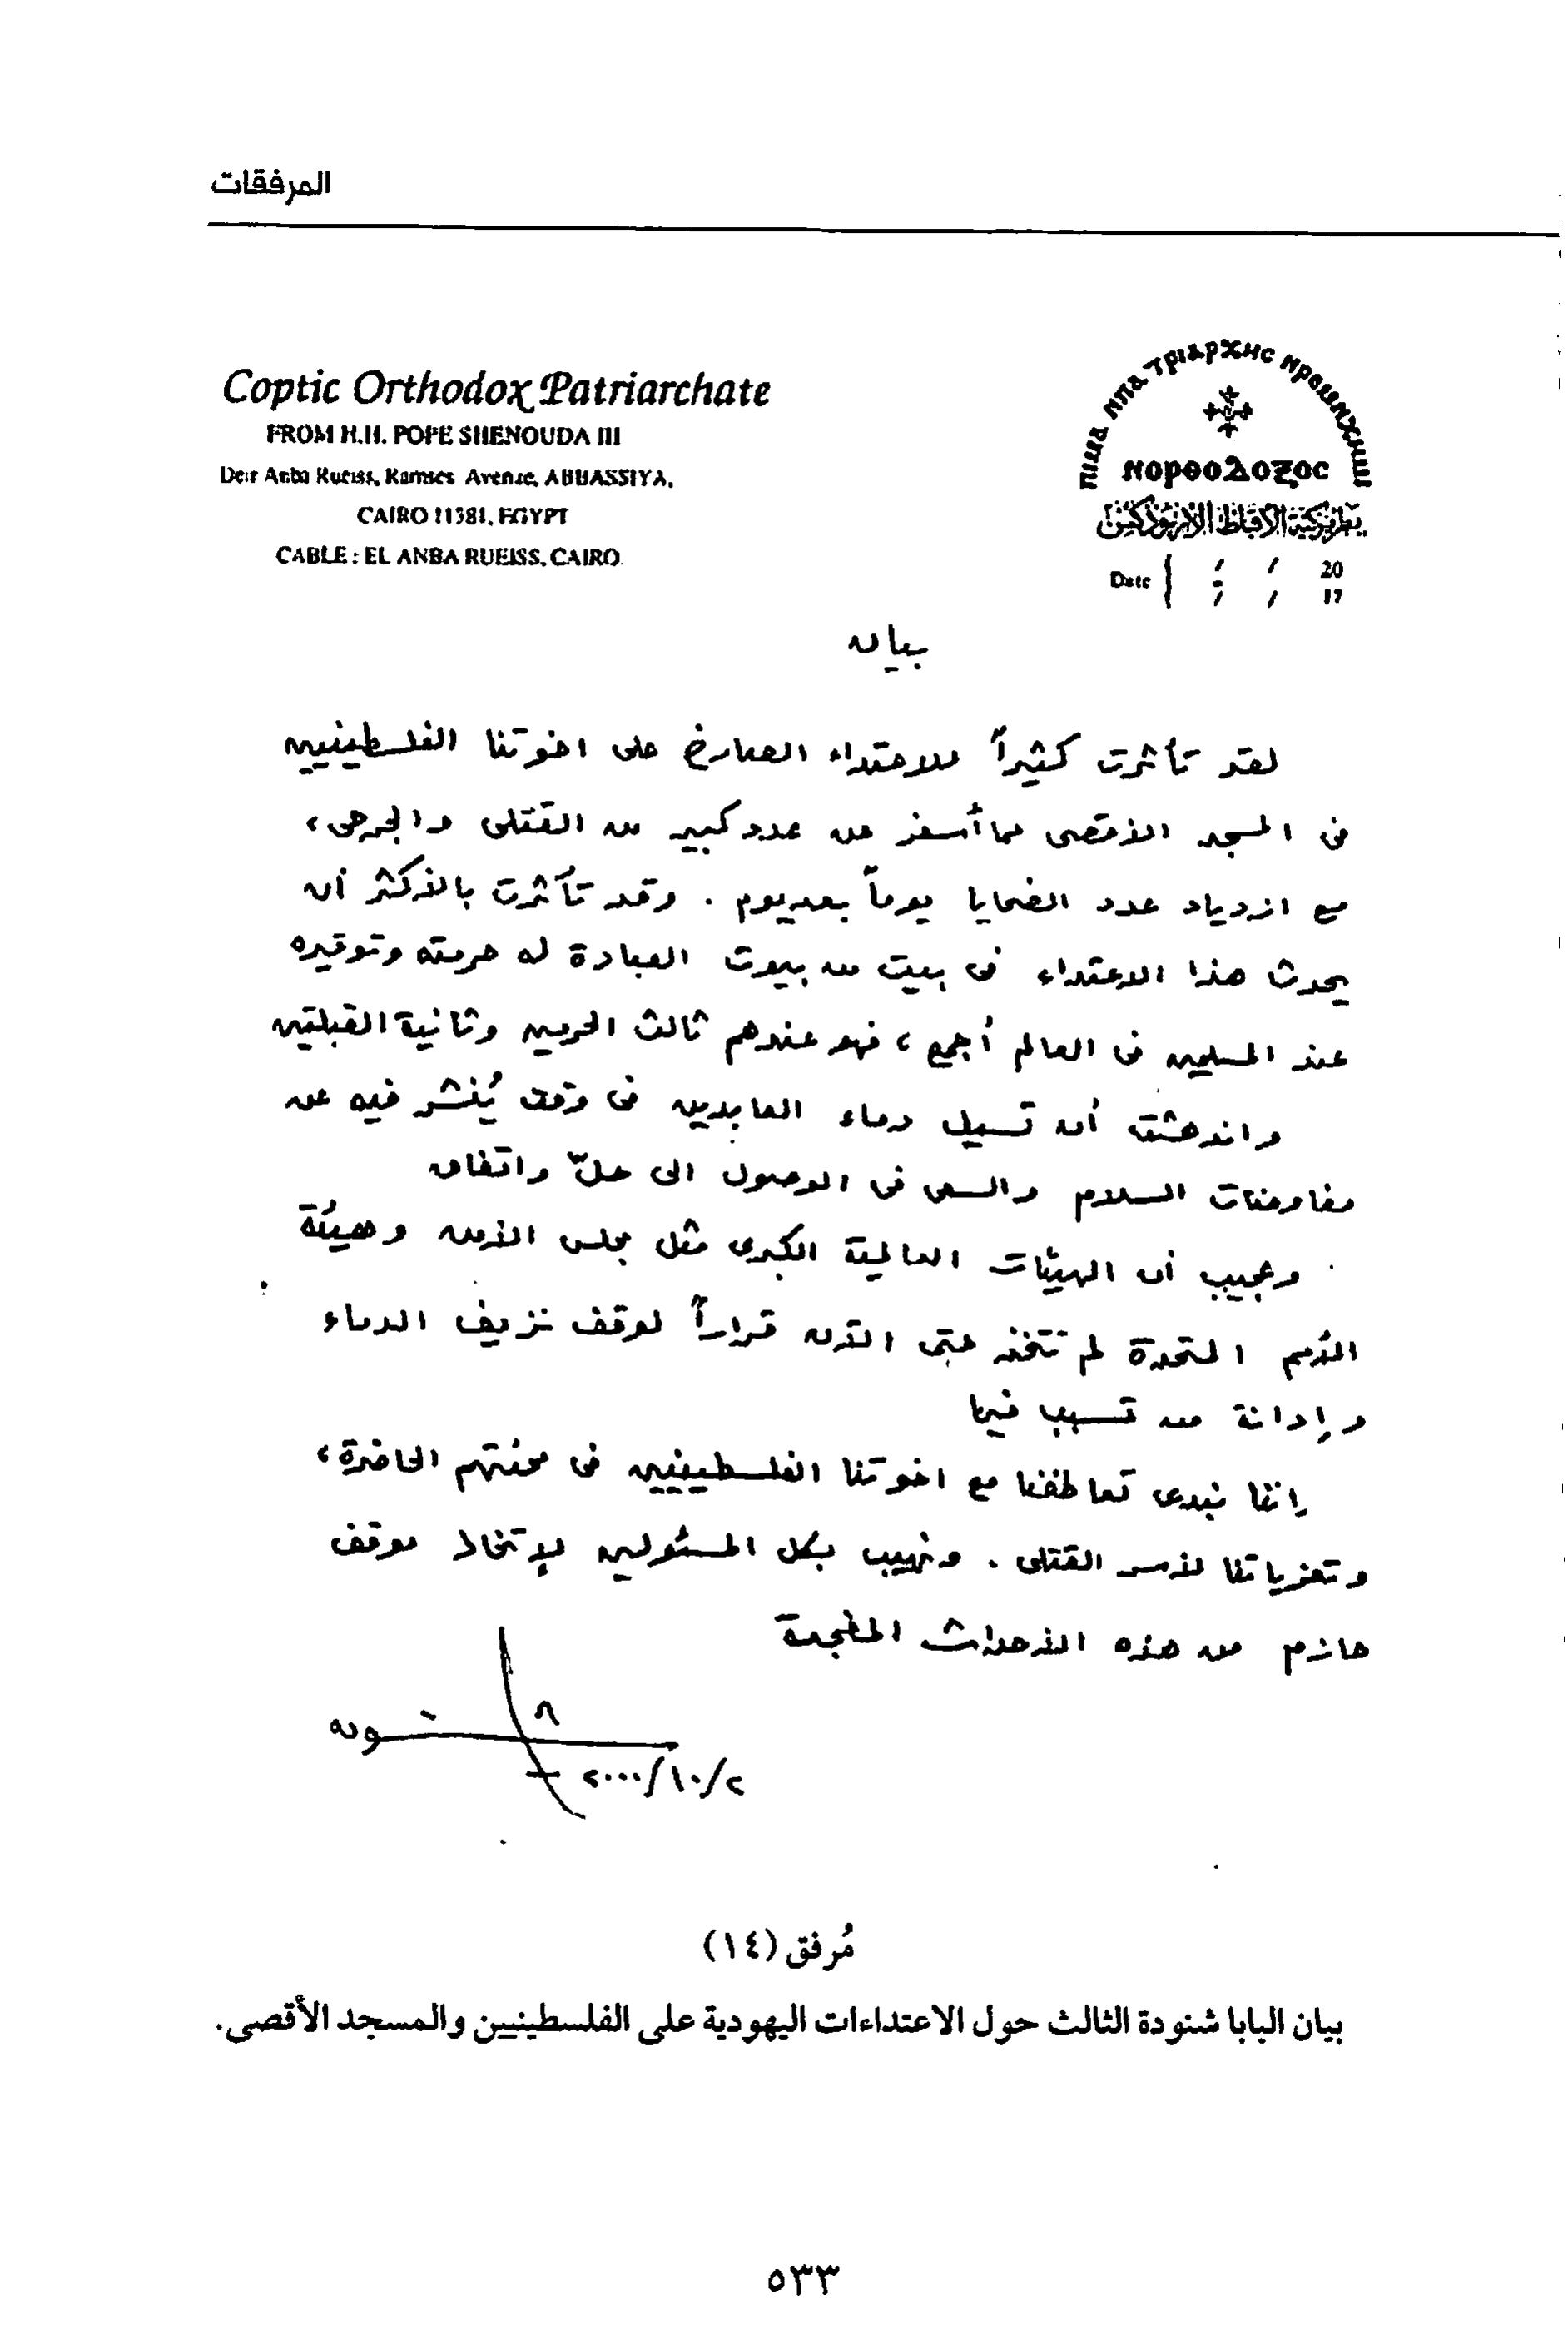 المرفقات
Coptic Orthodox Patriarchate
FROM H.H. POPE SHENOUDA III
Deir Anba Rueiss, Ramses Avenue, ABBASSIYA,
CAIRO 11381, EGYPT
CABLE : EL ANBA RUEISS, CAIRO
ⲛⲟⲣⲑⲟⲇⲟⲝⲟⲥ
بطريركية الأقباط الأرثوذكس
Date / / 20
/ / 17
بيان
لقد تأثرت كثيراً للاعتداء الصارخ على اخوتنا الفلسطينيين
فى المسجد الأقصى مما أسفر عن عدد كبير من القتلى والجرحى،
مع ازدياد عدد الضحايا يوماً بعد يوم . وقد تأثرت بالأكثر أن
يحدث هذا الاعتداء فى بيت من بيوت العبادة له حرمته وتوقيره
عند المسلمين فى العالم أجمع ، فهو عندهم ثالث الحرمين وثانية القبلتين
واندهشت أن تسيل دماء العابدين فى وقت يُنشر فيه عن
مفاوضات السلام والسعى فى الوصول الى حلّ واتفاق
وعجيب أن الهيئات العالمية الكبرى مثل مجلس الأمن وهيئة
الأمم المتحدة لم تتخذ حتى الآن قراراً لوقف نزيف الدماء
وإدانة من تسبب فيها
إننا نبدى تعاطفنا مع اخوتنا الفلسطينيين فى محنتهم الحاضرة،
وتعزياتنا لأسر القتلى . ونهيب بكل المسئولين لإتخاذ موقف
حازم من هذه الأحداث المفجعة
٢/١٠/٢٠٠٠
مُرفق (١٤)
بيان البابا شنودة الثالث حول الاعتداءات اليهودية على الفلسطينيين والمسجد الأقصى.
٥٣٣